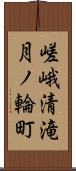 嵯峨清滝
月ノ輪町